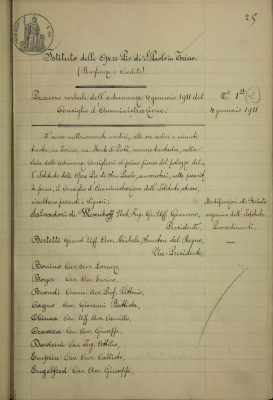 25
Istituto delle Opere Pie di S. Paolo in Torino.
(Beneficenza e Credito)
Processo verbale dell'adunanza 4 gennaio 1911 del
Consiglio d'Amministrazione.
N.° 1°
4 gennaio 1911
L'anno millenovecentoundici, alle ore sedici e minuti
trenta, in Torino, via Monte di Pietà, numero trentadue, nella
sala delle adunanze Consigliari al primo piano del palazzo del
l'Istituto delle Opere Pie di San Paolo, convocatosi, nelle prescrit
te forme, il Consiglio d'Amministrazione dell'Istituto stesso,
risultano presenti i Signori:
Modificazioni allo Statuto
organico dell'Istituto.
Provvedimenti.
Salvadori di Wiesenhoff Nob. Ing. Gr. Uff. Giacomo,
Presidente,
Bertetti Grand'Uff. Avv. Michele Senatore del Regno,
Vice-Presidente,
Bonino Cav. Avv. Lorenzo
Borga Cav. Avv.
Brondi Comm. Avv. Prof. Vittorio,
Cagno Cav. Avv. Giovanni Battista,
Uff. Avv. Camillo,
Cravera Cav. Avv. Giuseppe,
Daviini Cav. Ing. Attilio,
Emprin Cav. Avv. Callisto,
Engelfred Cav. Avv. Giuseppe,